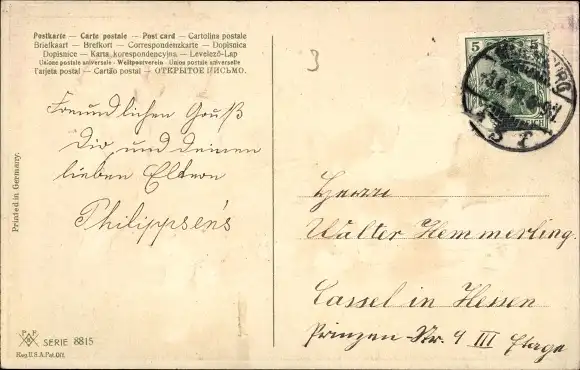 Postkarte — Carte postale — Post card — Cartolina postale
Briefkaart — Brefkort — Correspondenzkarte — Dopisnica
Dopisnice — Karta korespondencyjna — Levelező-Lap
Unione postale universale - Weltpostverein - Union postale universelle
Tarjeta postal — Cartão postal — ОТКРЫТОЕ ПИСЬМО.
3
5 5
Freundlichen Gruß
Dir und deinen
lieben Eltern
Philippsen's
Printed in Germany.
Herrn
Walter Hemmerling.
Cassel in Hessen
Prinzen Str. 9 III Etage
P. F. B
SERIE 8815
Reg. U.S.A. Pat. Off.